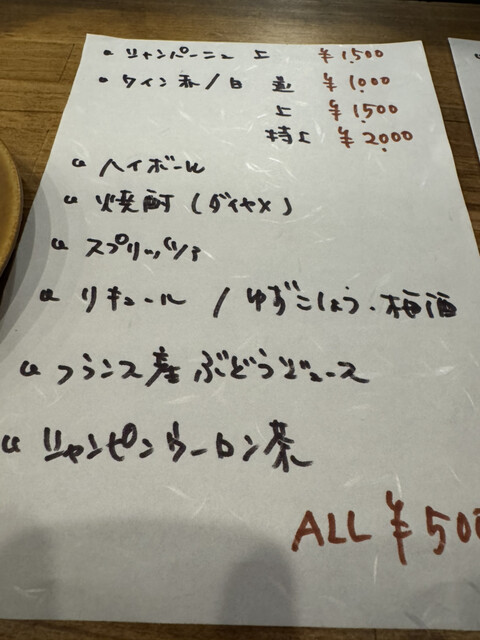 シャンパーニュ 上 ¥1,500
ワイン 赤/白 並 ¥1,000
上 ¥1,500
特上 ¥2,000
ハイボール
焼酎 (ダイヤメ)
スプリッツァ
リキュール / ゆずこしょう・梅酒
フランス産 ぶどうジュース
ジャンピンウーロン茶
ALL ¥500